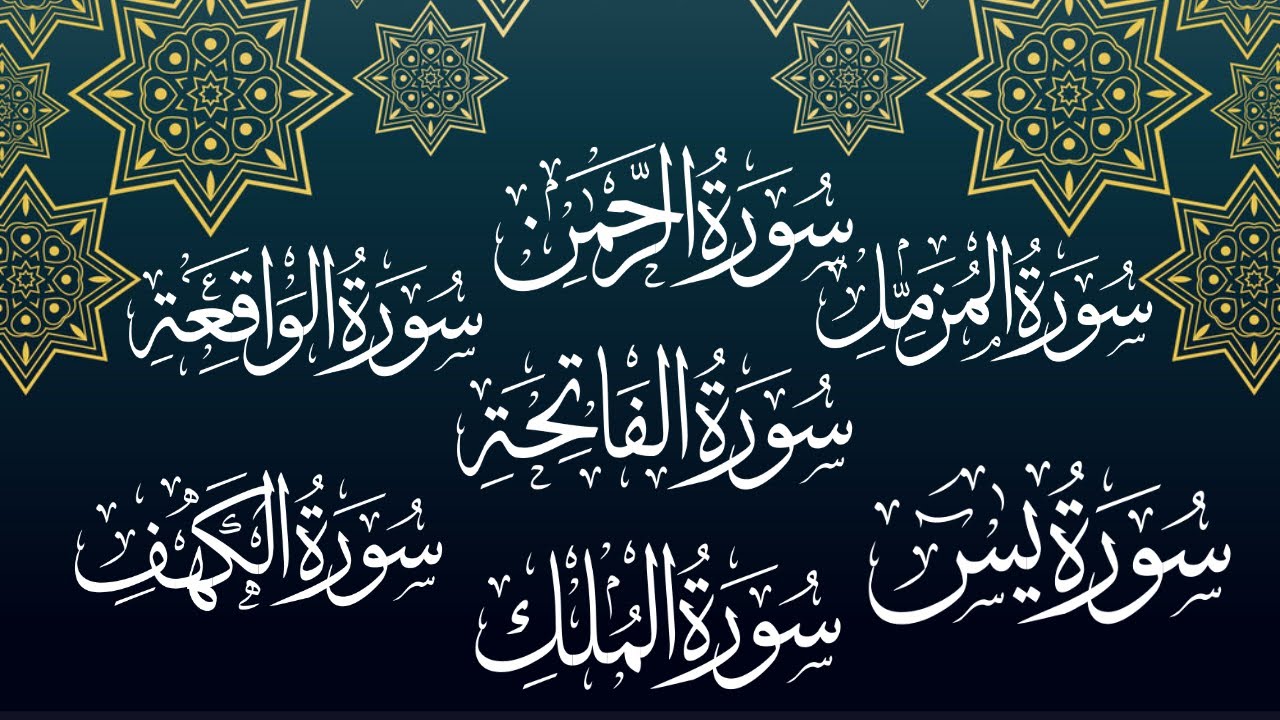 سُورَةُ الرَّحْمَٰنِ
سُورَةُ المُزَمِّلِ
سُورَةُ الوَاقِعَةِ
سُورَةُ الفَاتِحَةِ
سُورَةُ يسٓ
سُورَةُ الكَهْفِ
سُورَةُ المُلْكِ